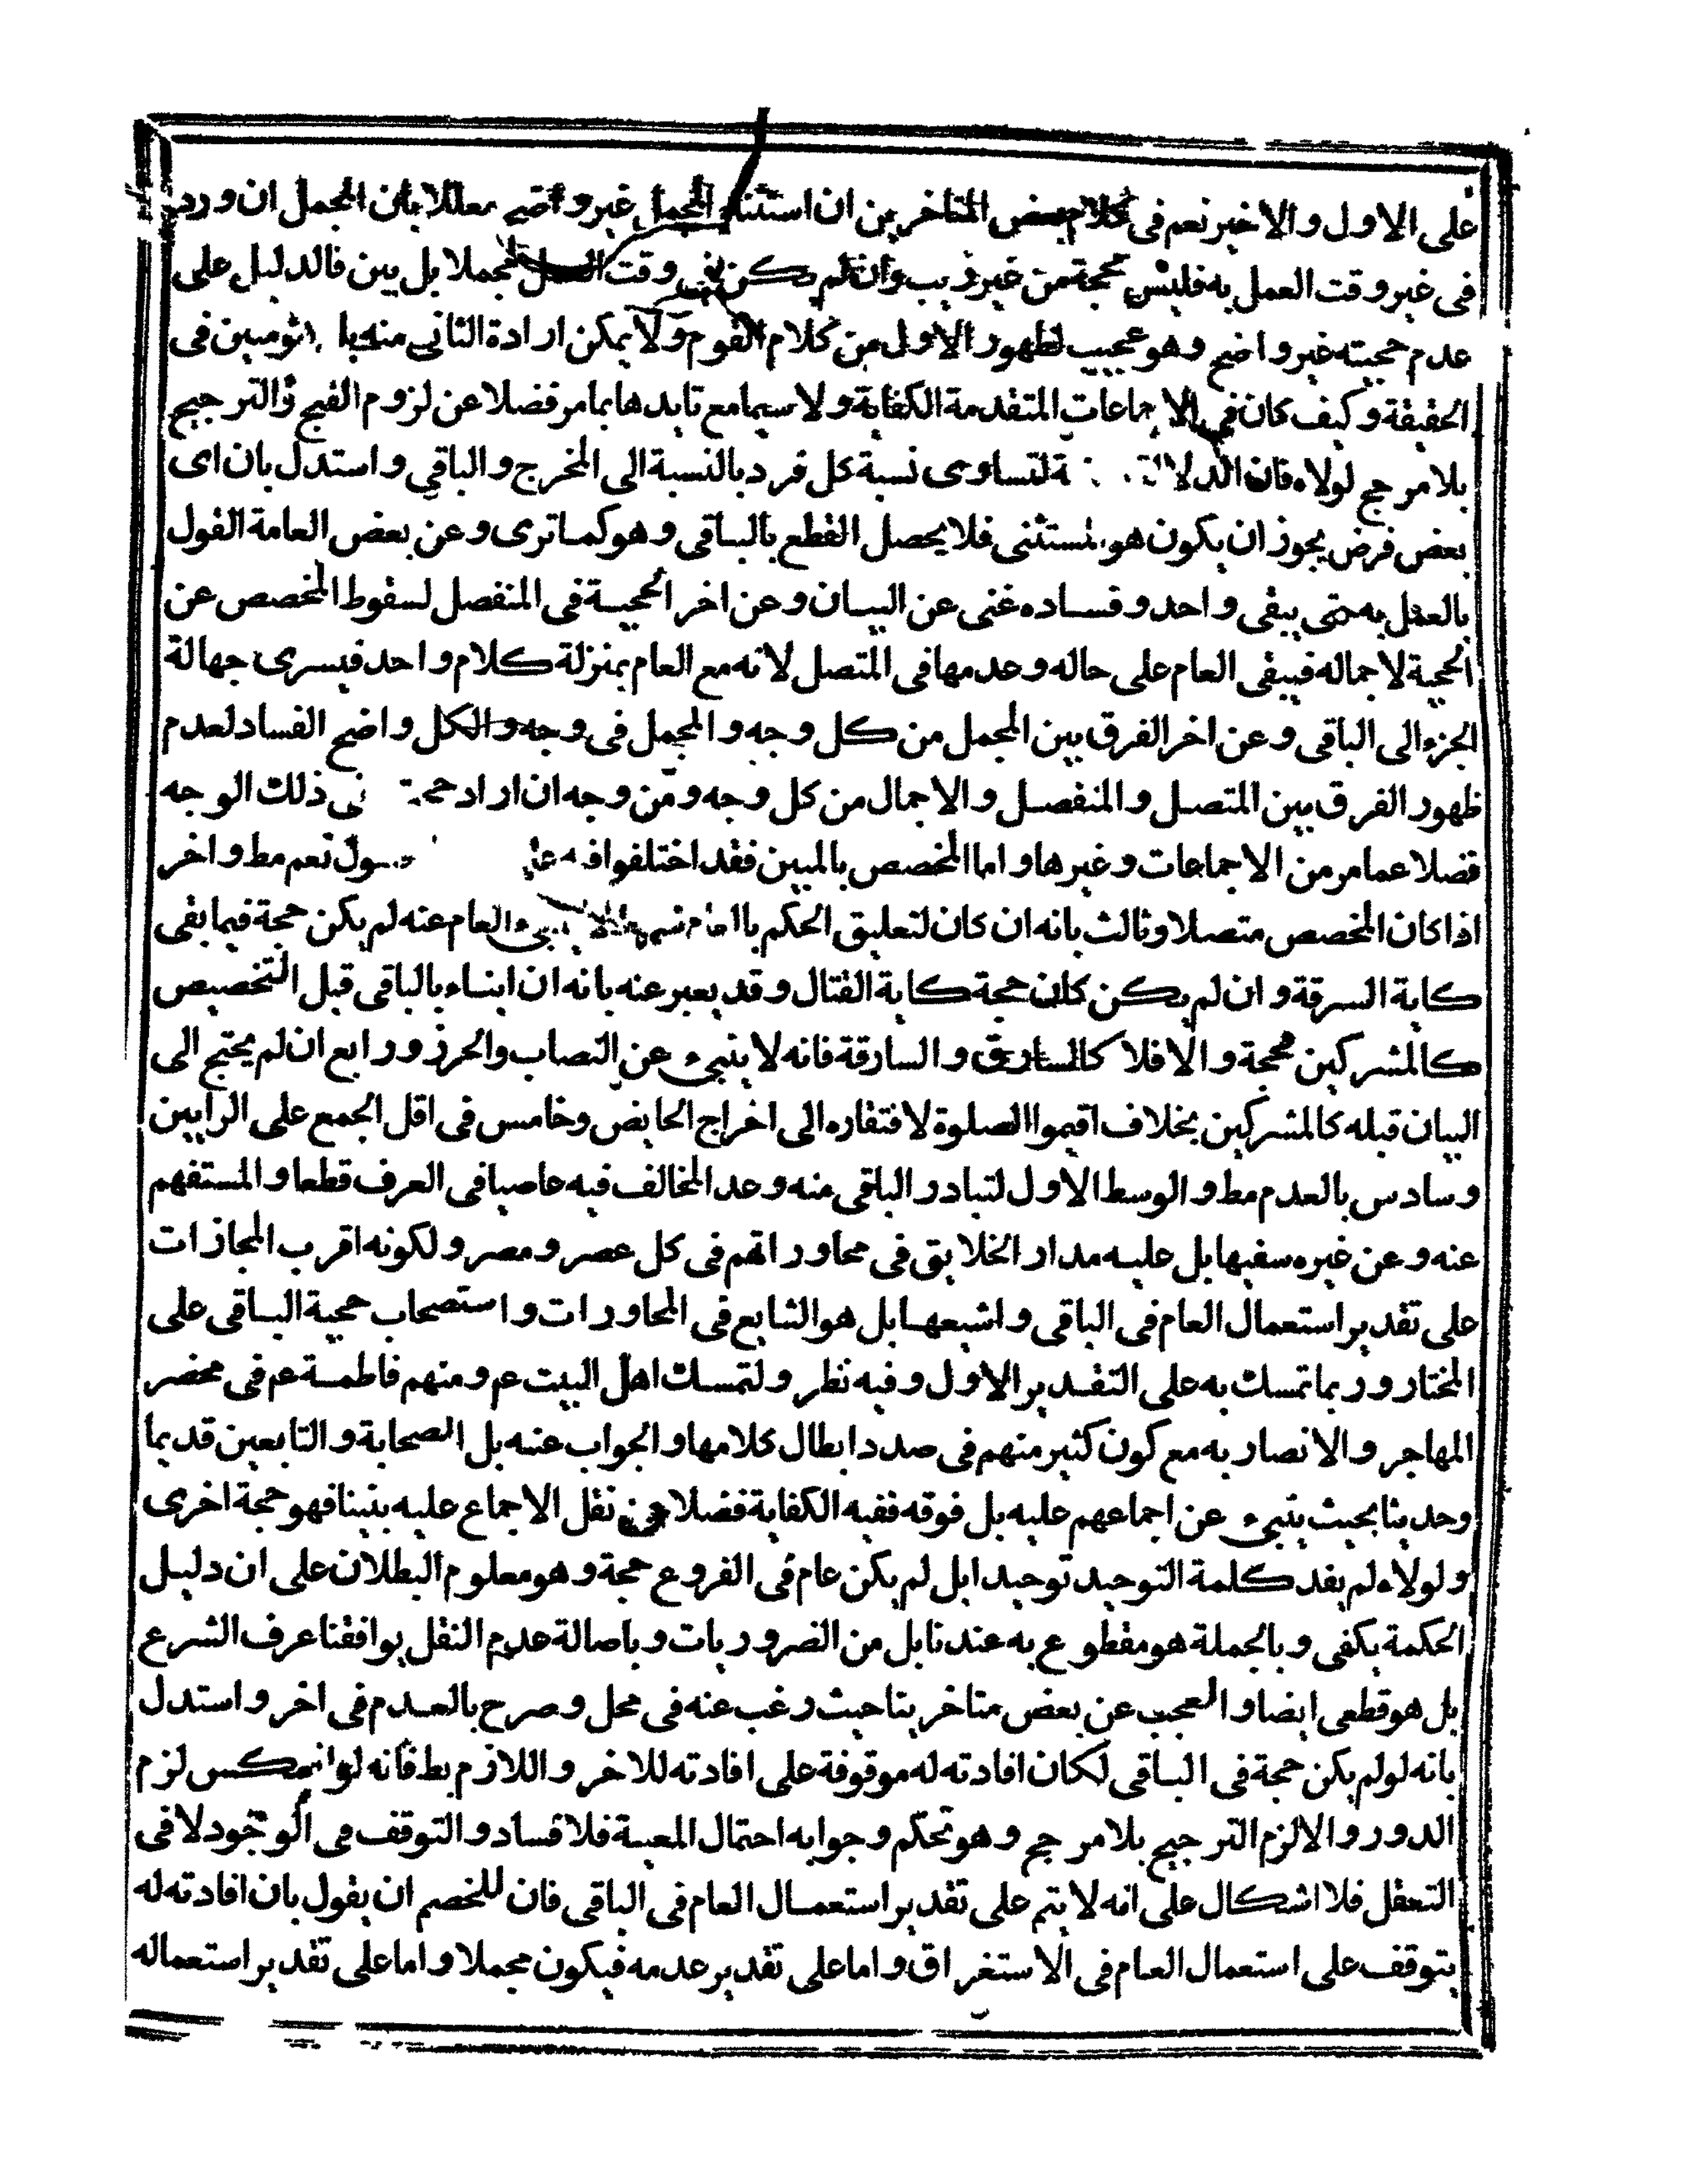 على الاول والاخير نعم فى كلام بعض المتاخرين ان استثناء المجمل غير واضح معللا بان المجمل ان ورد
فى غير وقت العمل به فليس بحجة من غير ريب وان لم يكن فى وقت العمل مجملا بل بين فالدليل على
عدم حجيته غير واضح وهو عجيب لظهور الاول من كلام القوم ولا يمكن ارادة الثانى منه مبين فى
الحقيقة وكيف كان فى الاجماعات المتقدمة الكفاية ولا سيما مع تايدها بما مر فضلا عن لزوم القبح والترجيح
بلا مرجح لولاه فان الدلالة لتساوى نسبة كل فرد بالنسبة الى المخرج والباقى واستدل بان اى
بعض فرض يجوز ان يكون هو المستثنى فلا يحصل القطع بالباقى وهو كما ترى وعن بعض العامة القول
بالعمل به حتى يبقى واحد وفساده غنى عن البيان وعن اخر الحجية فى المنفصل لسقوط المخصص عن
الحجية لاجماله فيبقى العام على حاله وعدمها فى المتصل لانه مع العام بمنزلة كلام واحد فيسرى جهالة
الجزء الى الباقى وعن اخر الفرق بين المجمل من كل وجه والمجمل فى وجه والكل واضح الفساد لعدم
ظهور الفرق بين المتصل والمنفصل والاجمال من كل وجه ومن وجه ان اراد فى ذلك الوجه
فضلا عما مر من الاجماعات وغيرها واما المخصص بالمبين فقد اختلفوا فيه نعم مط واخر
اذا كان المخصص متصلا وثالث بانه ان كان لتعليق الحكم العام عنه لم يكن حجة فيما بقى
كاية السرقة وان لم يكن كان حجة كاية القتال وقد يعبر عنه بانه ان ابناء بالباقى قبل التخصيص
كالمشركين فحجة والا فلا كالسارق والسارقة فانه لا ينبىء عن النصاب والحرز ورابع ان لم يحتج الى
البيان قبله كالمشركين بخلاف اقيموا الصلوة لافتقاره الى اخراج الحايض وخامس فى اقل الجمع على الرايين
وسادس بالعدم مط والوسط الاول لتبادر الباقى منه وعد المخالف فيه عاصيا فى العرف قطعا والمستفهم
عنه وعن غيره سفيها بل عليه مدار الخلايق فى محاوراتهم فى كل عصر ومصر ولكونه اقرب المجازات
على تقدير استعمال العام فى الباقى واشيعها بل هو الشايع فى المحاورات واستصحاب حجية الباقى على
المختار وربما تمسك به على التقدير الاول وفيه نظر ولتمسك اهل البيت ع م ومنهم فاطمة ع م فى محضر
المهاجر والانصار به مع كون كثير منهم فى صدد ابطال كلامها والجواب عنه بل الصحابة والتابعين قديما
وحديثا بحيث ينبىء عن اجماعهم عليه بل فوقه ففيه الكفاية فضلا عن نقل الاجماع عليه بنينا فهو حجة اخرى
ولولاه لم يفد كلمة التوحيد توحيدا بل لم يكن عام فى الفروع حجة وهو معلوم البطلان على ان دليل
الحكمة يكفى وبالجملة هو مقطوع به عندنا بل من الضروريات وباصالة عدم النقل يوافقنا عرف الشرع
بل هو قطعى ايضا والعجب عن بعض متاخرينا حيث رغب عنه فى محل وصرح بالعدم فى اخر واستدل
بانه لو لم يكن حجة فى الباقى لكان افادته له موقوفة على افادته للاخر واللازم بط فانه لو انعكس لزم
الدور والا لزم الترجيح بلا مرجح وهو تحكم وجوابه احتمال المعية فلا فساد والتوقف فى الوجود لا فى
التعقل فلا اشكال على انه لا يتم على تقدير استعمال العام فى الباقى فان للخصم ان يقول بان افادته له
يتوقف على استعمال العام فى الاستغراق واما على تقدير عدمه فيكون مجملا واما على تقدير استعماله